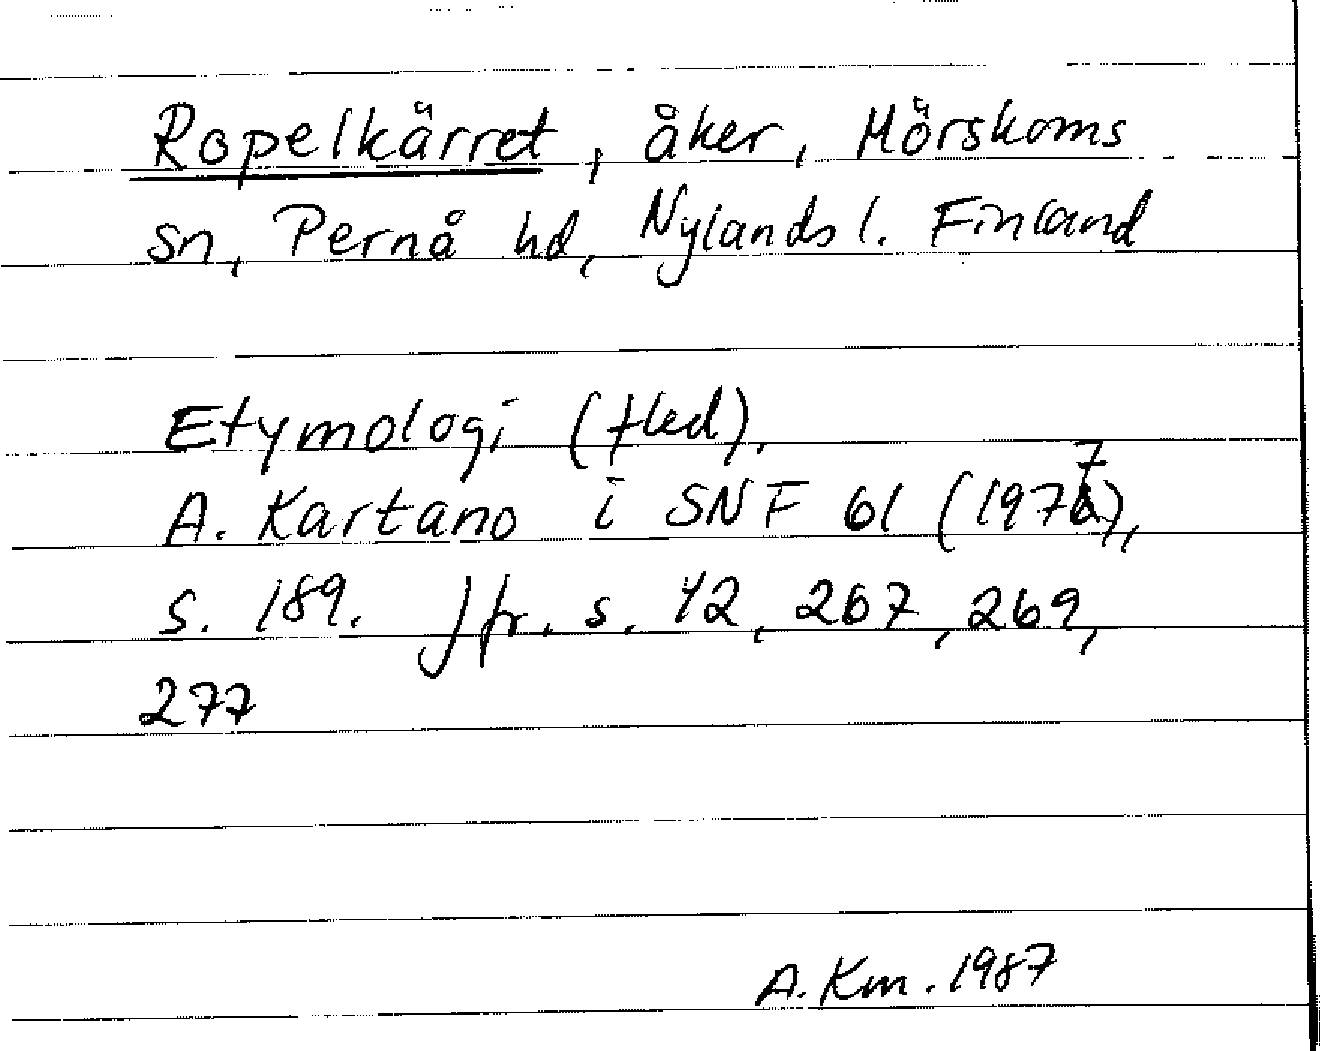 Ropelkärret, åker, Mörskoms
sn, Pernå hd, Nylands l. Finland
Etymologi (fled).
A. Kartano i SNF 61 (1977),
s. 189. Jfr. s. 42, 267, 269,
277
A. Km. 1987